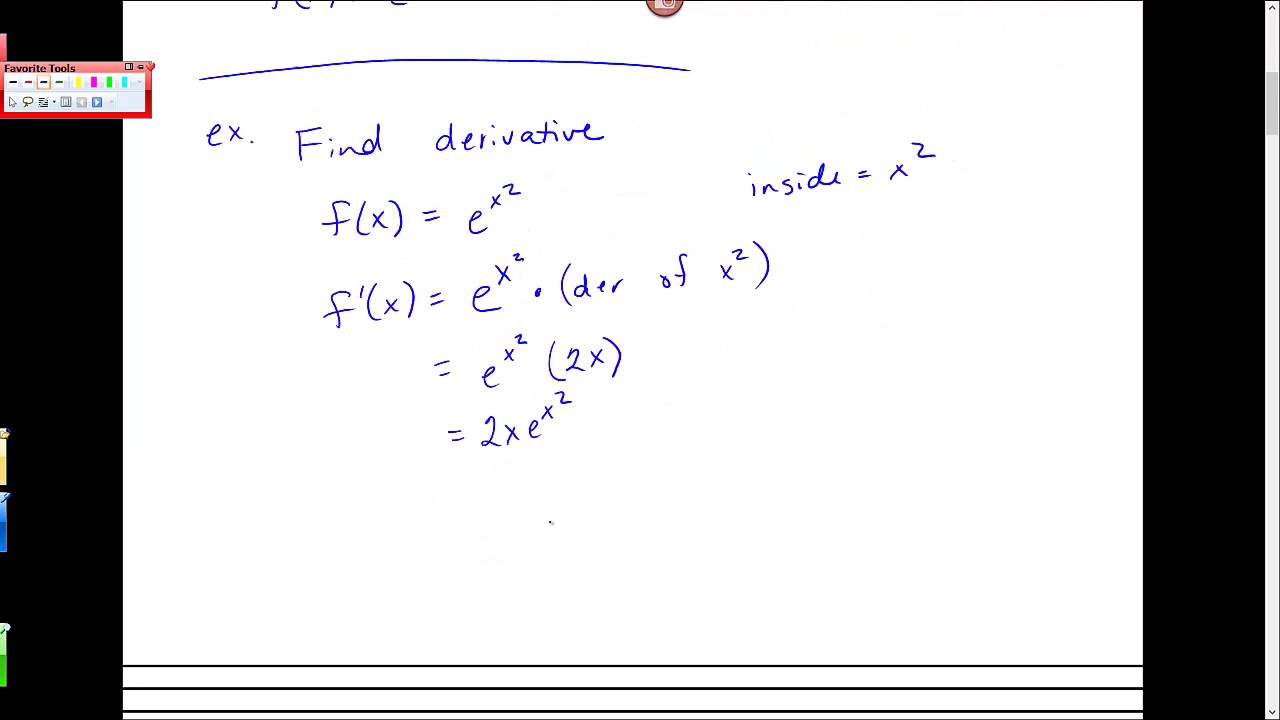 Favorite Tools
ex. Find derivative
inside = x²
f(x) = e^{x²}
f'(x) = e^{x²} · (der of x²)
= e^{x²} (2x)
= 2xe^{x²}